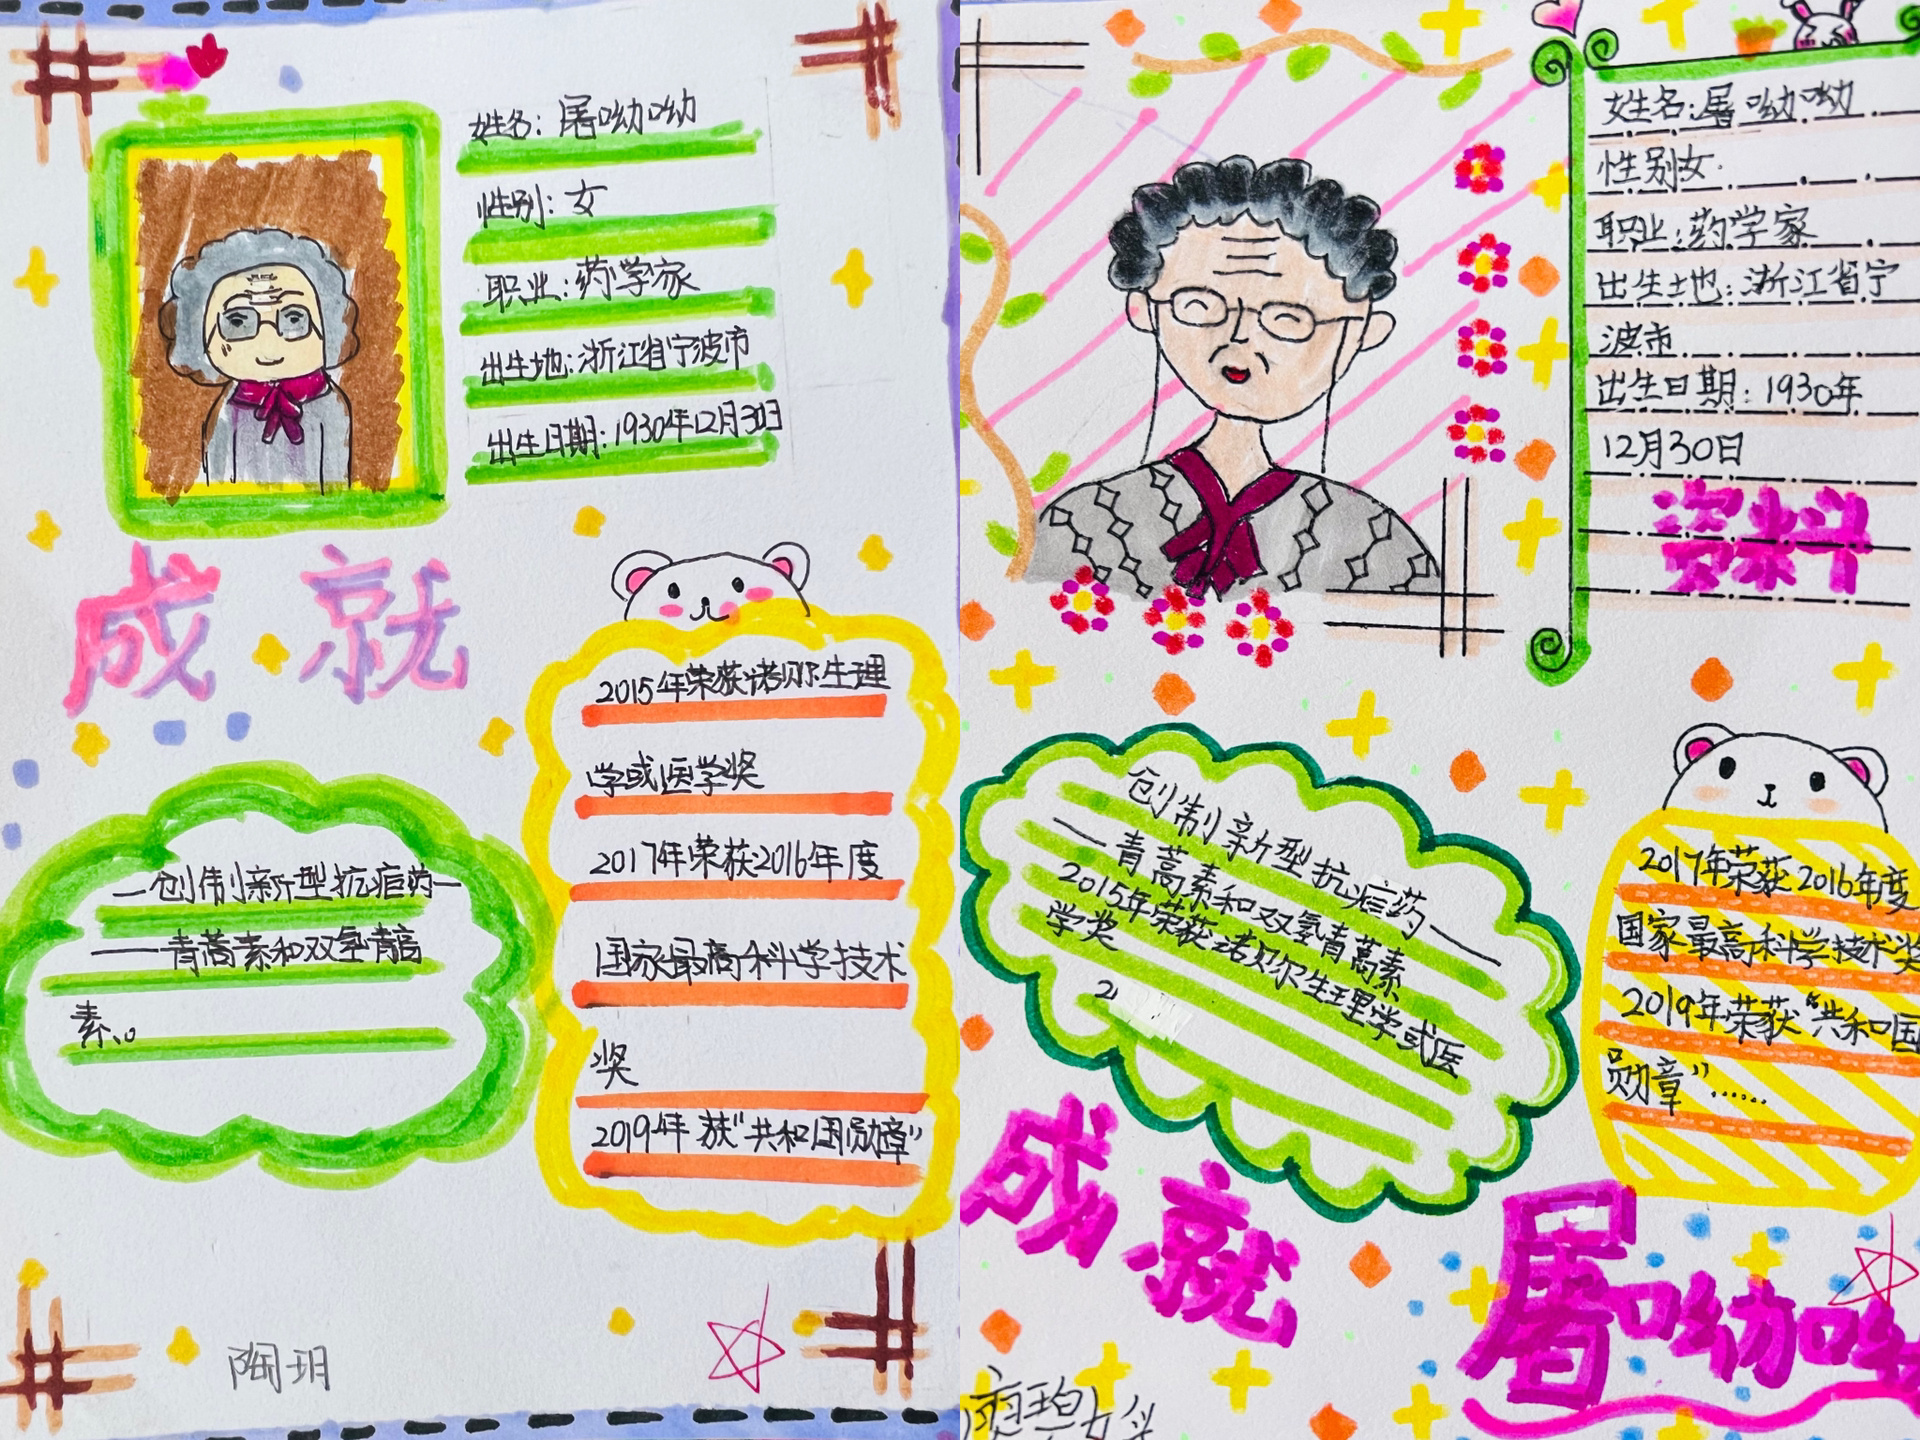 姓名：屠呦呦
性别：女
职业：药学家
出生地：浙江省宁波市
出生日期：1930年12月30日
成就
2015年荣获诺贝尔生理
学或医学奖
2017年荣获2016年度
国家最高科学技术
奖
2019年获“共和国勋章”
—创制新型抗疟药—
——青蒿素和双氢青蒿
素。
陶玥
姓名：屠呦呦
性别女
职业：药学家
出生地：浙江省宁
波市
出生日期：1930年
12月30日
资料
创制新型抗疟药—
—青蒿素和双氢青蒿素
2015年荣获诺贝尔生理学或医
学奖
2
2017年荣获2016年度
国家最高科学技术奖
2019年荣获“共和国
勋章”……
成就
屠呦呦